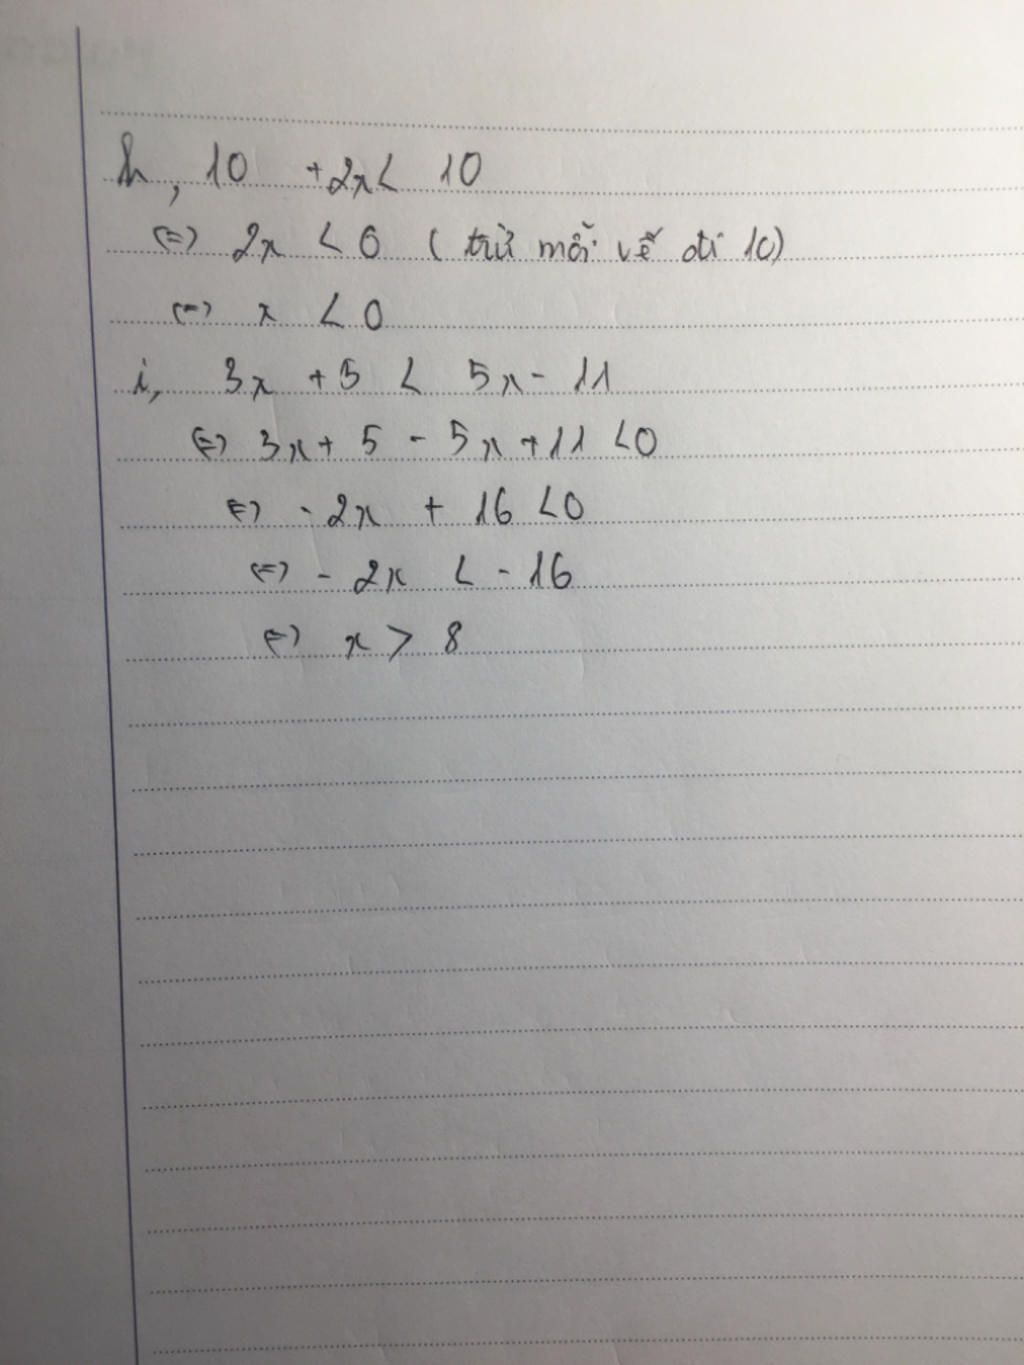 h, 10 +2x < 10
<=> 2x < 0 ( trừ mỗi vế đi 10)
<=> x < 0
i, 3x + 5 < 5x - 11
<=> 3x + 5 - 5x + 11 < 0
<=> - 2x + 16 < 0
<=> - 2x < - 16
<=> x > 8